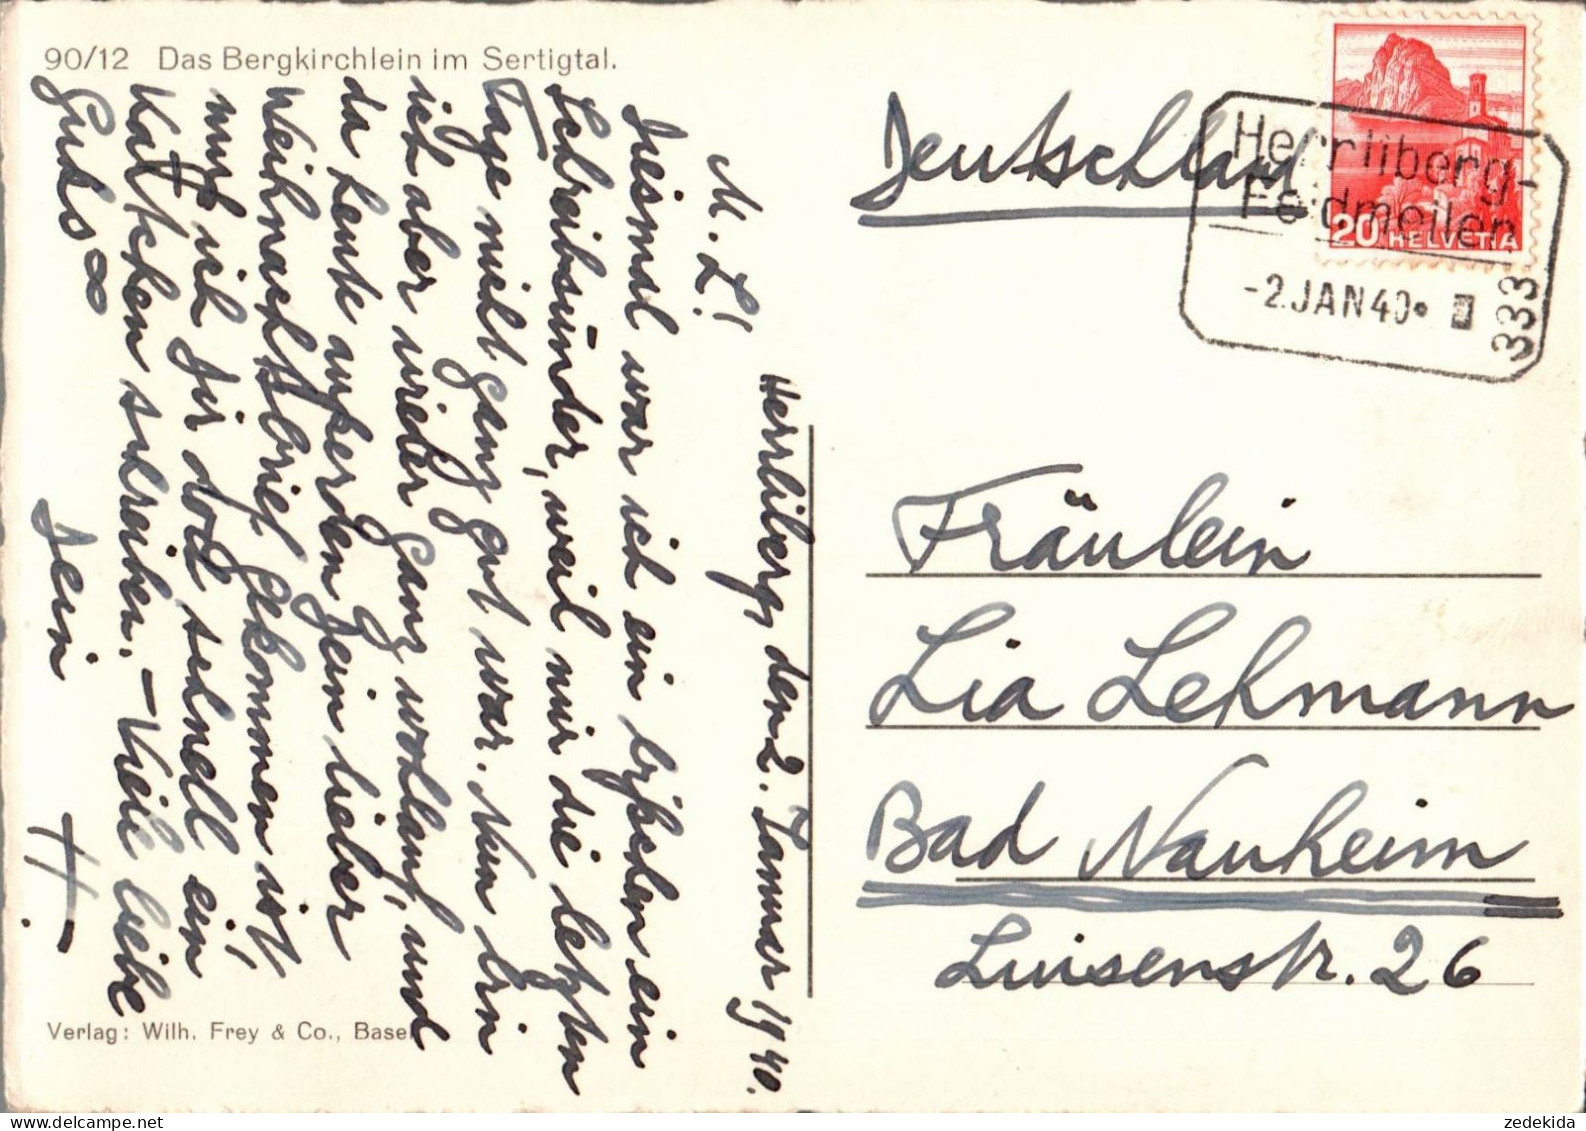 90/12 Das Bergkirchlein im Sertigtal.
Herrliberg, den 2. Januar 1940.
M. L.!
Diesmal war ich ein bißchen ein
Schreibsünder, weil mir die letzten
Tage nicht ganz gut war. Nun bin
ich aber wieder ganz wohlauf, und
da heute außerdem Dein lieber
Weihnachtsbrief gekommen ist,
muß ich Dir doch schnell ein
Kärtchen schreiben. – Viele liebe
Guhs ∞
Dein H.
Verlag: Wilh. Frey & Co., Basel
Deutschland
HELVETIA
20
Herrliberg-
Feldmeilen
-2.JAN40
333
Fräulein
Lia Lehmann
Bad Nauheim
Luisenstr. 26
zedekida